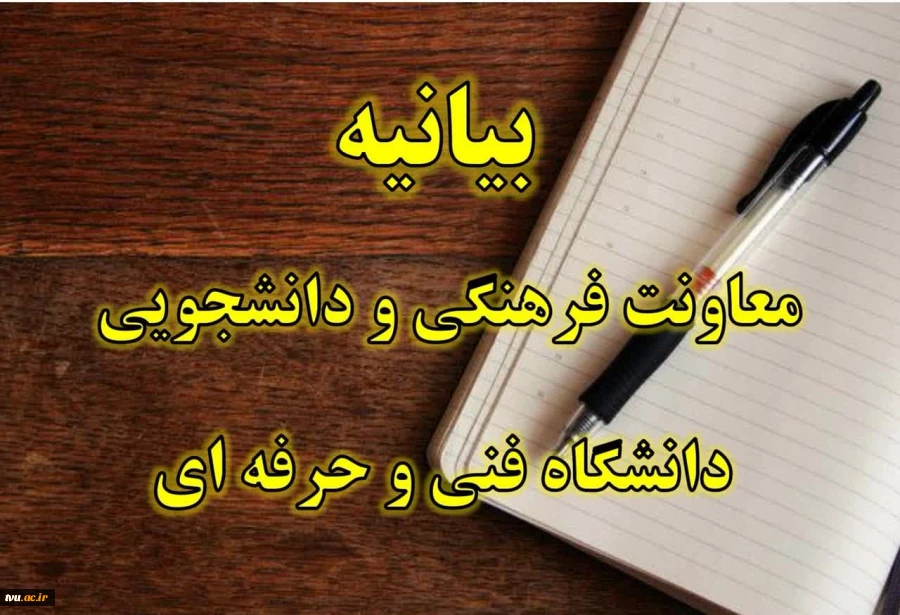 بیانیه
معاونت فرهنگی و دانشجویی
دانشگاه فنی و حرفه ای
tvu.ac.ir